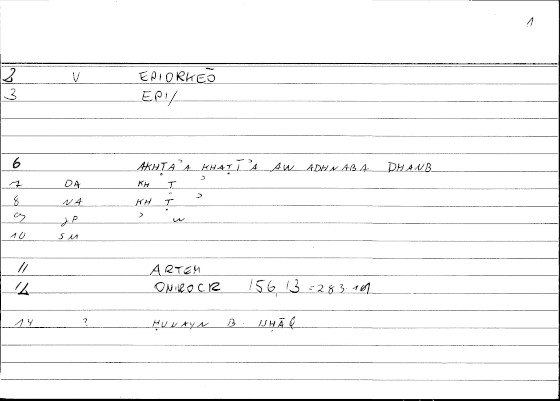 1
2 V EPIORKEŌ
3 EPI/
6 AKHṬAʾA KHAṬĪʾA AW ADHNABA DHANB
7 DA KH Ṭ ʾ
8 NA KH Ṭ ʾ
9 JP ʾ W
10 SM
11 ARTEM
12 ONIROCR 156,13 = 283
14 ? ḤUNAYN B.